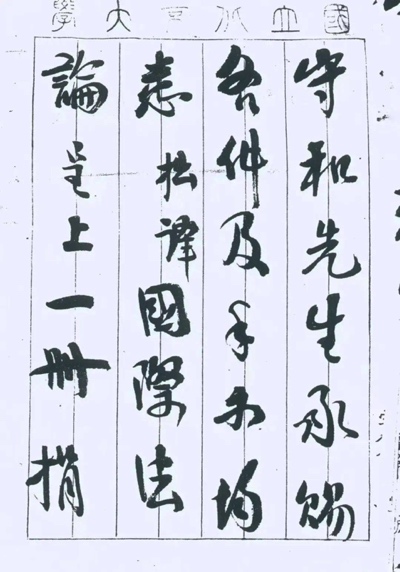 國立北京大學
守和先生承賜
各件及手示均
悉拙譯國際法
論呈上一冊捐